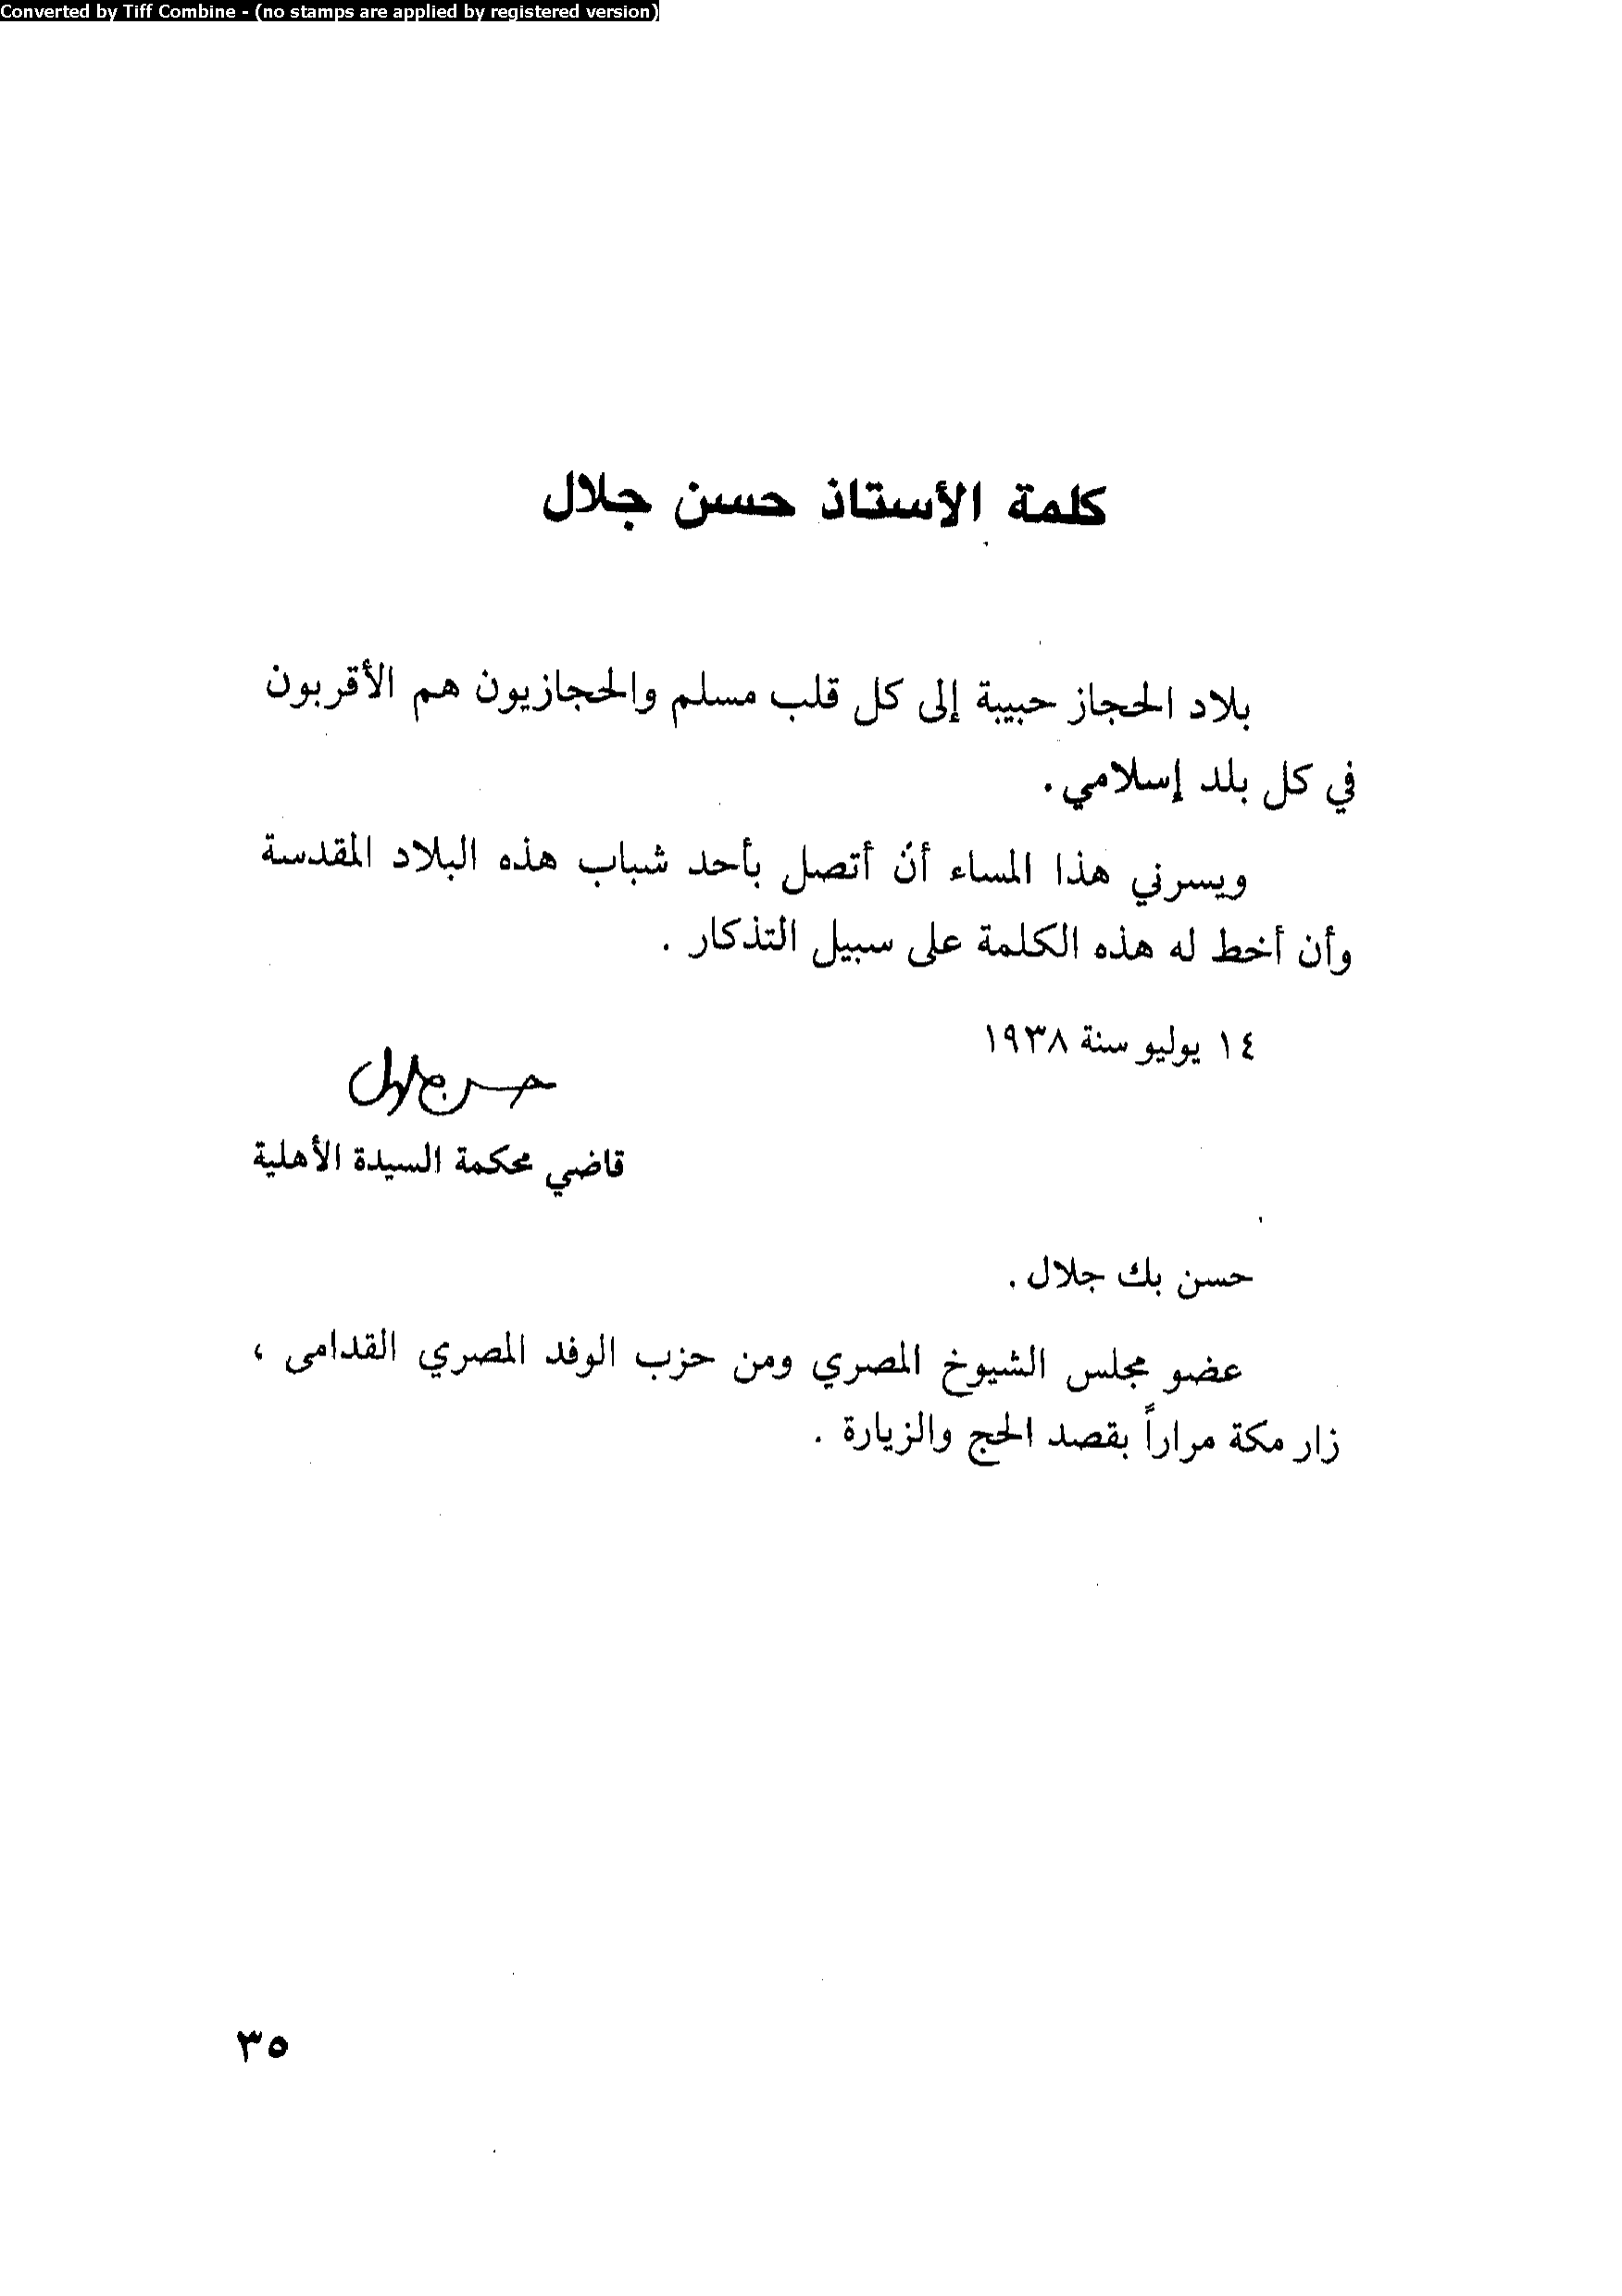 Converted by Tiff Combine - (no stamps are applied by registered version)
كلمة الأستاذ حسن جلال
بلاد الحجاز حبيبة إلى كل قلب مسلم والحجازيون هم الأقربون
في كل بلد إسلامي .
ويسرني هذا المساء أن أتصل بأحد شباب هذه البلاد المقدسة
وأن أخط له هذه الكلمة على سبيل التذكار .
١٤ يوليو سنة ١٩٣٨
حسن جلال
قاضي محكمة السيدة الأهلية
حسن بك جلال .
عضو مجلس الشيوخ المصري ومن حزب الوفد المصري القدامى ،
زار مكة مراراً بقصد الحج والزيارة .
٣٥